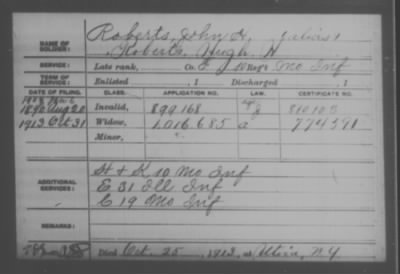 Roberts, John H, (alias)
NAME OF SOLDIER: Roberts, Hugh H
SERVICE: Late rank, Co. Reg't Mo Inf
TERM OF SERVICE: Enlisted , 1 Discharged , 1
DATE OF FILING. CLASS. APPLICATION NO. LAW. CERTIFICATE NO.
1890 Aug 20 Invalid, 899168
1913 Oct 31 Widow, 1.016.685 a 774591
Minor,
ADDITIONAL SERVICES: St & K, 10 Mo Inf
E 31 Ill Inf
C 19 Mo Inf
REMARKS:
Died Oct. 25, 1913, at Utica, N.Y.